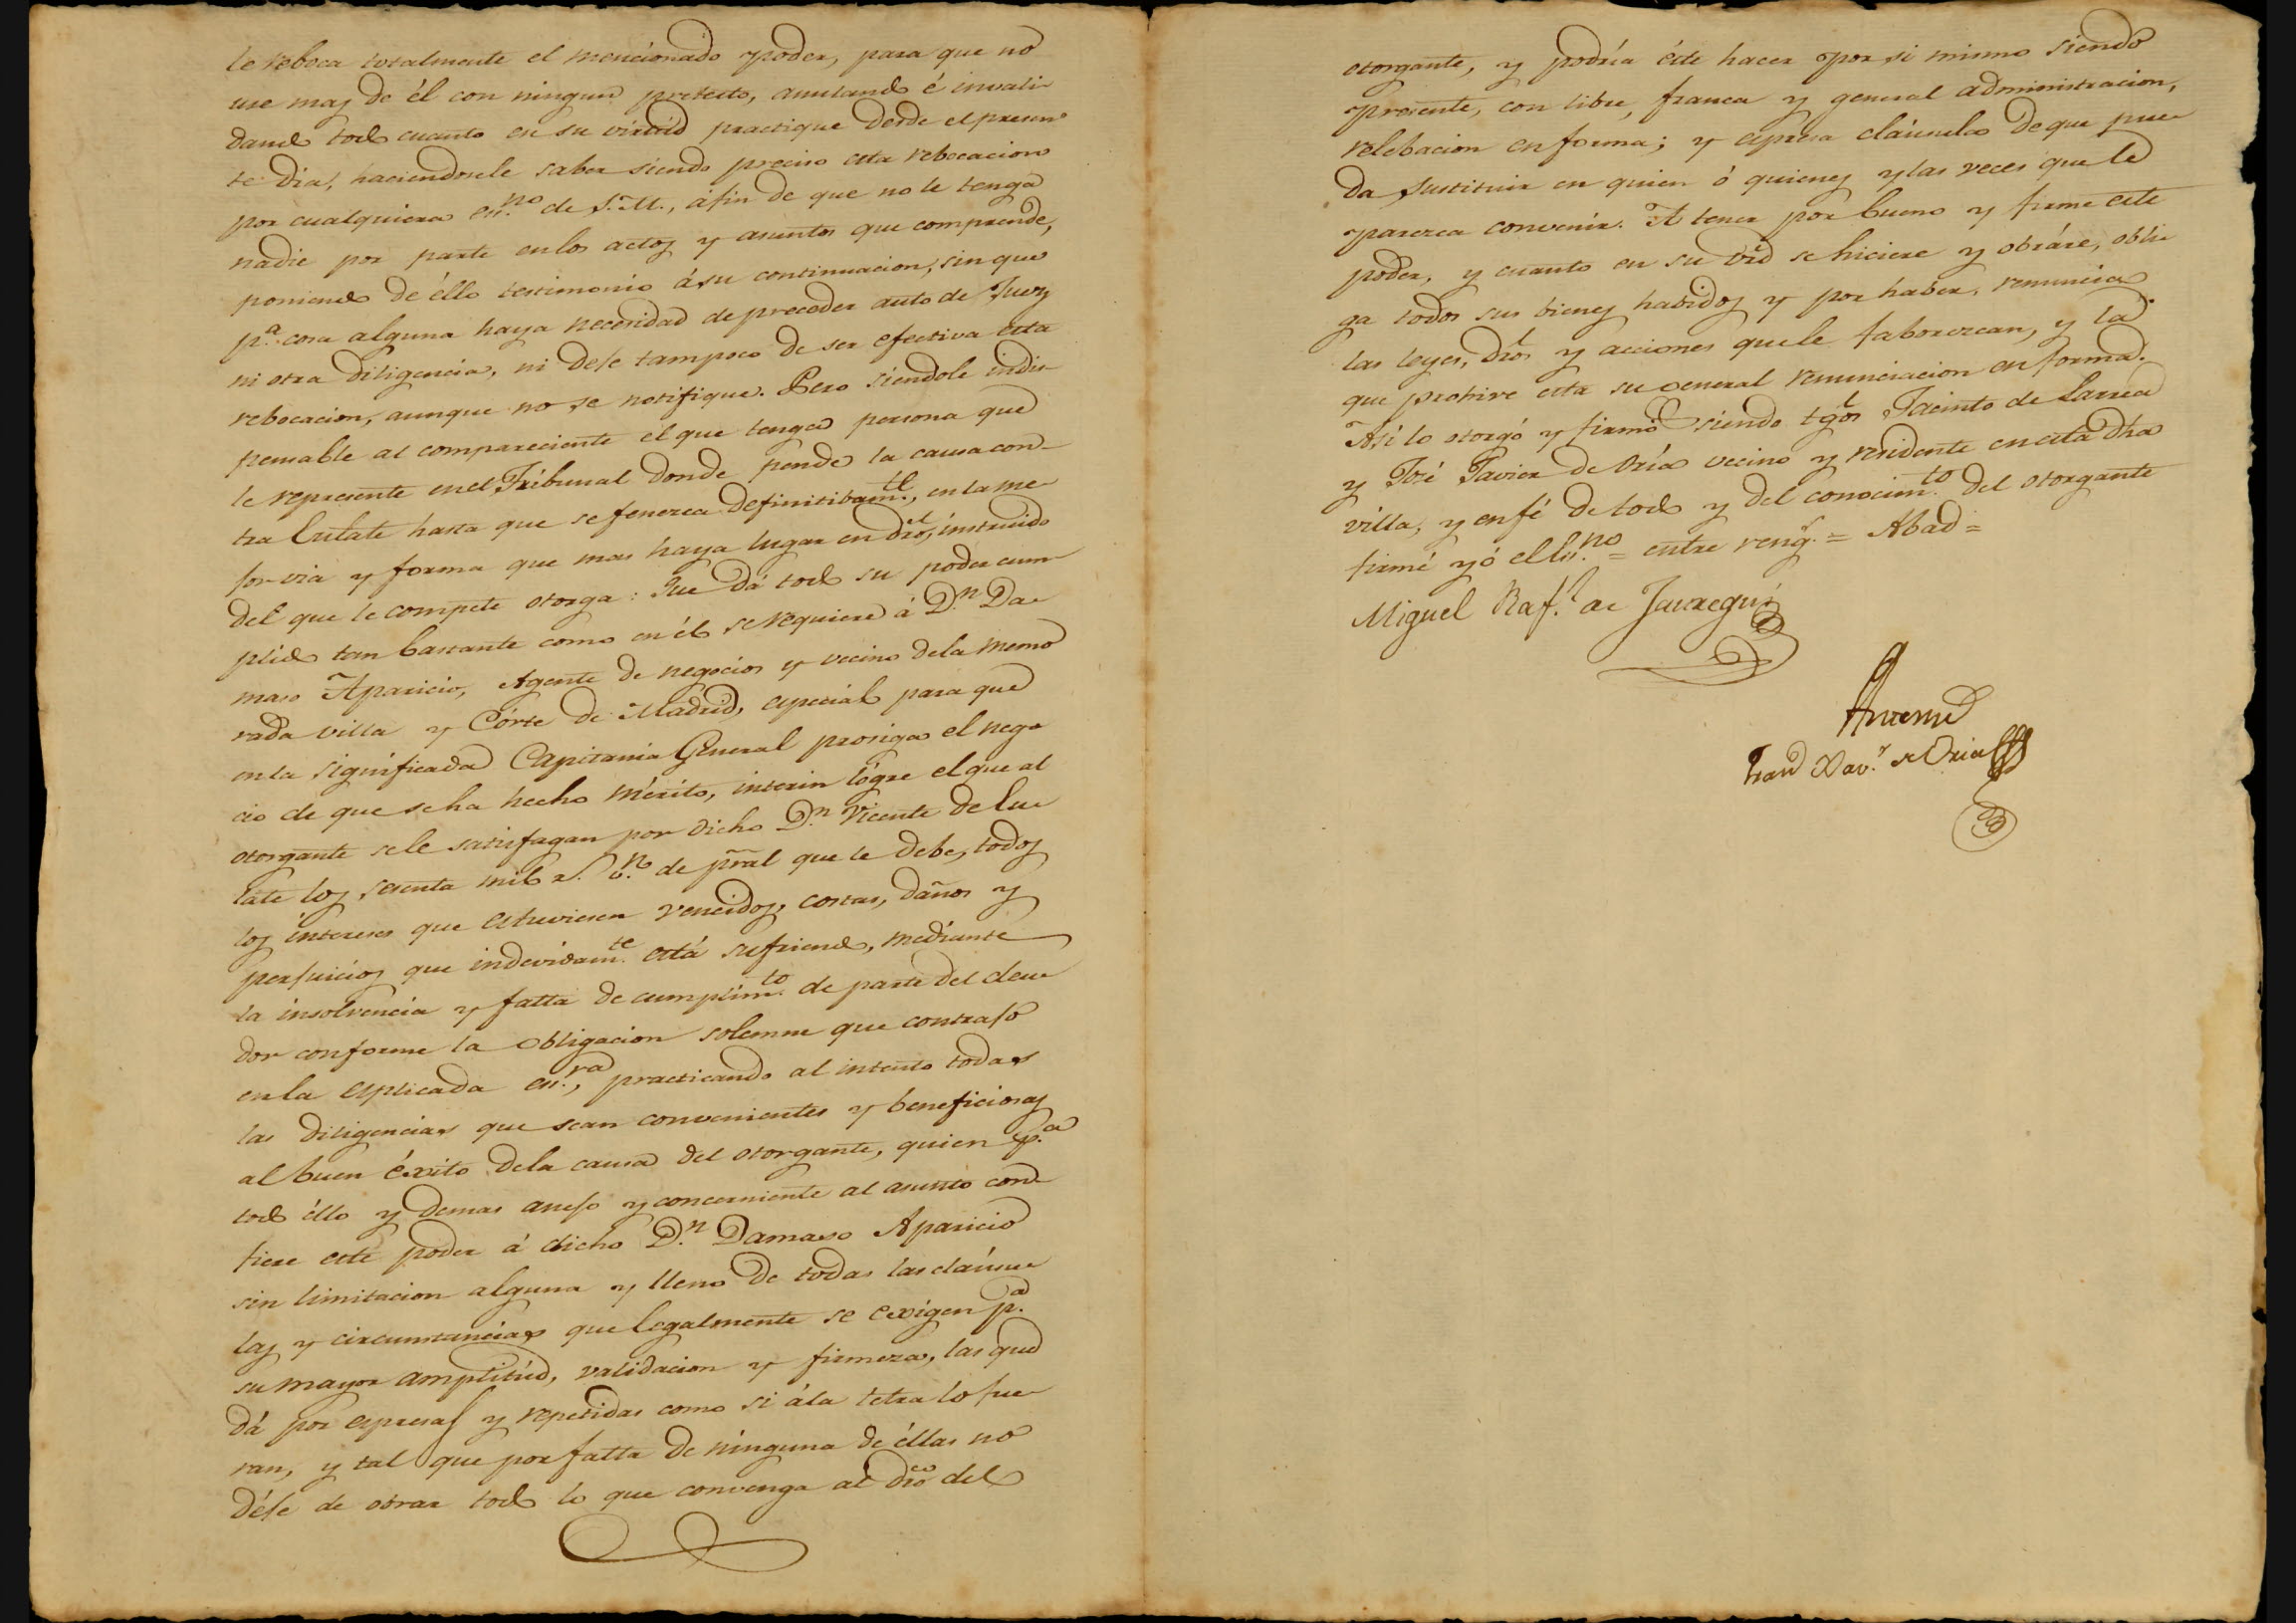 le reboca totalmente el mencionado poder, para que no
use mas de él con ningun pretecto, anulando é invali-
dando todo cuanto en su virtud practique desde el presen-
te dia, haciendosele saber siendo preciso esta rebocacion
por cualquiera es.no de S.M., á fin de que no le tenga
nadie por parte en los actos y asuntos que comprende,
poniendo de éllo testimonio á su continuacion, sin que
p.a cosa alguna haya necesidad de preceder auto de Juez
ni otra diligencia, ni deje tampoco de ser efectiva esta
rebocacion, aunque no se notifique. Pero siendole indis-
pensable al compareciente el que tenga persona que
le represente en el Tribunal donde pende la causa con-
tra Eulate hasta que se fenezca definitibam.te, en la me-
jor via y forma que mas haya lugar en dro, instruido
del que le compete otorga: Que dá todo su poder cum-
plido tan bastante como en él se requiere á D.n Da-
maso Aparicio, Agente de negocios y vecino de la memo
rada villa y Córte de Madrid, especial para que
en la significada Capitania General prosiga el nego
cio de que se ha hecho mérito, interin lógre el que al
otorgante se le satisfagan por dicho D.n Vicente de Eu-
late los sesenta mil r.s v.n de pral que le debe, todos
los intereses que estuviesen vencidos, costas, daños y
perjuicios que indevidam.te está sufriendo, mediante
la insolvencia y falta de cumplim.to de parte del deu-
dor conforme la obligacion solemne que contrajo
en la esplicada es.ra, practicando al intento todas
las diligencias que sean convenientes y beneficiosas
al buen éxito de la causa del otorgante, quien p.a
todo éllo y demas anejo y concerniente al asunto con-
fiere este poder á dicho D.n Damaso Aparicio
sin limitacion alguna y lleno de todas las cláusu-
las y circunstancias que legalmente se exigen p.a
su mayor amplitúd, validacion y firmeza, las que
dá por espresas y repetidas como si á la letra lo fue-
ran, y tal que por falta de ninguna de éllas no
déje de obrar todo lo que convenga al dro del
otorgante, y podría éste hacer por si mismo siendo
presente, con libre, franca y general administracion,
relebacion en forma; y espresa cláusula de que pue-
da sustituir en quien ó quienes y las veces que le
parezca convenir. A tener por bueno y firme este
poder, y cuanto en su vrd se hiciere y obráre, obli-
ga todos sus bienes habidos y por haber, renuncia
las leyes, dros y acciones que le faborezcan, y la
que prohive esta su general renunciacion en forma.
Asi lo otorgó y firmó siendo tgos Jacinto de Larrea
y José Javier de Oria vecino y residente en esta dha
villa, y en fé de todo y del conocim.to del otorgante
firmé yó el Es.no = entre reng.s = Abad =
Miguel Raf.l de Jauregui
Antemi
Xav.r de Oria